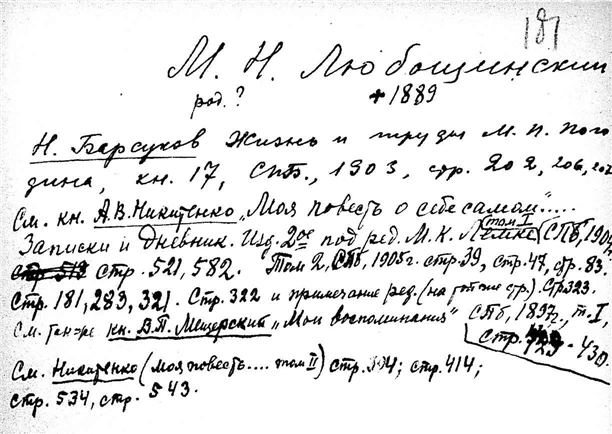 181
М. Н. Любощинский
род.? + 1889
Н. Барсуков Жизнь и труды М. П. Пого
дина, кн. 17, СПБ., 1903, стр. 202, 206, 207
См. кн. А.В. Никитенко „Моя повесть о себе самом"....
Записки и Дневник. Изд. 2ое под ред. М. К. Лемке том I СПб, 1904,
стр. 521, 582. Том 2, СПб, 1905 г. стр. 39, стр. 47, стр. 83.
Стр. 181, 283, 321. Стр. 322 и примечание ред. (на той же стр.). Стр 323.
См. кн. В.П. Мещерский „Мои воспоминания" СПб, 1897, т. I,
стр. 429 - 430.
См. Никитенко (Моя повесть.... том II) стр. 394; стр. 414;
стр. 534, стр. 543.